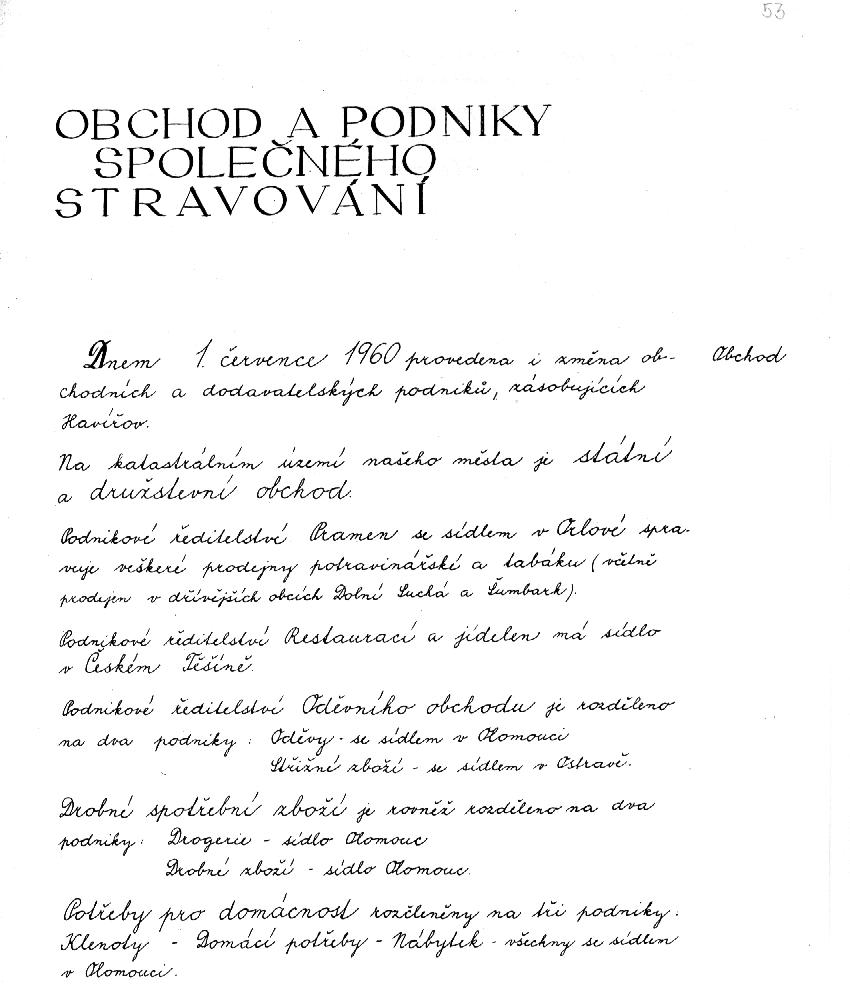 53
OBCHOD A PODNIKY
SPOLEČNÉHO
STRAVOVÁNÍ
Dnem 1. července 1960 provedena i změna ob-
Obchod
chodních a dodavatelských podniků, zásobujících
Havířov.
Na katastrálním území našeho města je státní
a družstevní obchod.
Podnikové ředitelství Pramen se sídlem v Orlové spra-
vuje veškeré prodejny potravinářské a tabáku (včetně
prodejen v dřívějších obcích Dolní Suchá a Šumbark).
Podnikové ředitelství Restaurací a jídelen má sídlo
v Českém Těšíně.
Podnikové ředitelství Oděvního obchodu je rozděleno
na dva podniky: Oděvy - se sídlem v Olomouci
Střižné zboží - se sídlem v Ostravě.
Drobné spotřební zboží je rovněž rozděleno na dva
podniky: Drogerie - sídlo Olomouc
Drobné zboží - sídlo Olomouc.
Potřeby pro domácnost rozčleněny na tři podniky:
Klenoty - Domácí potřeby - Nábytek - všechny se sídlem
v Olomouci.